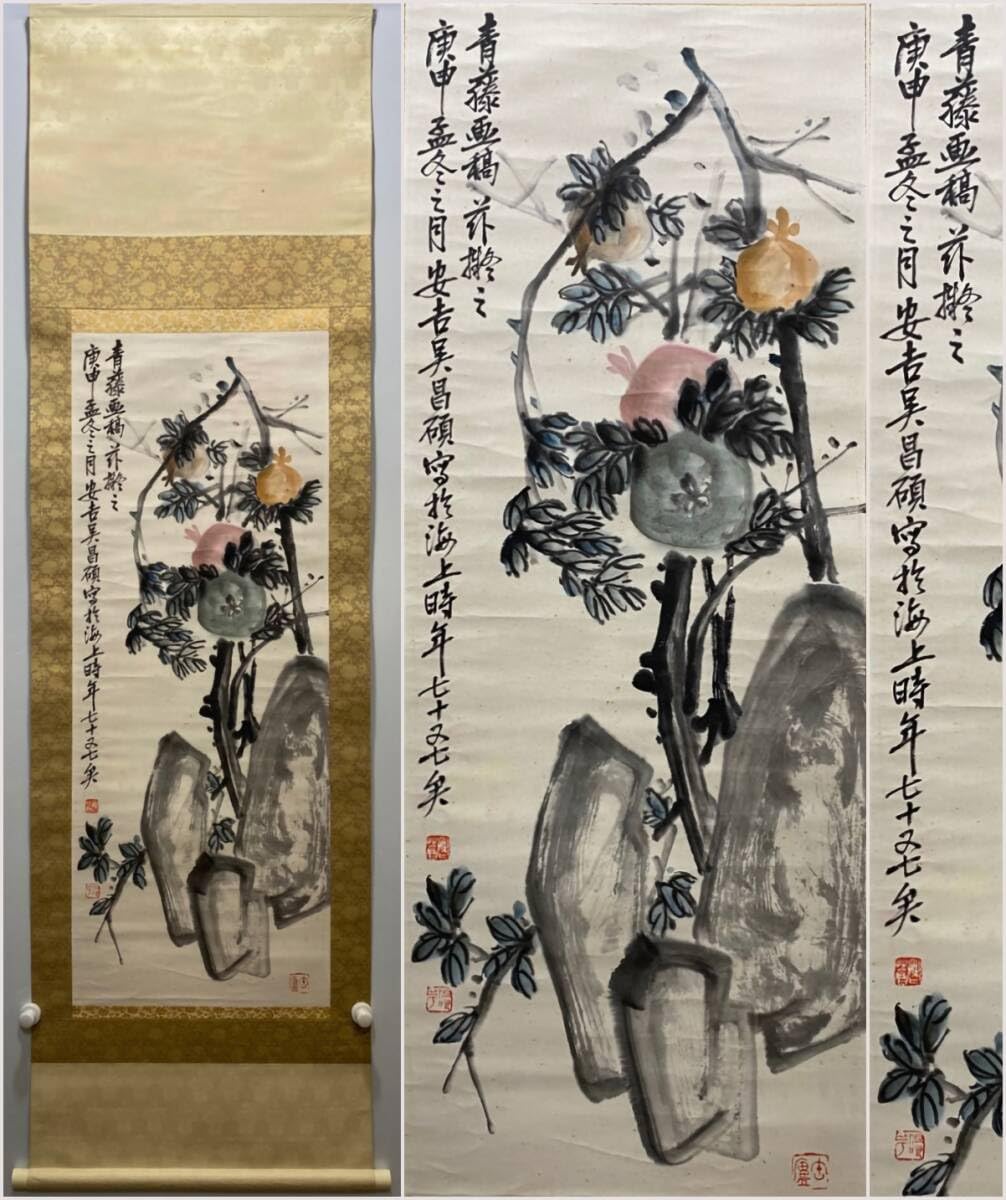 青藤画稿茲擬之
庚申孟冬之月安吉吴昌碩写於海上時年七十又七矣
青藤画稿茲擬之
庚申孟冬之月安吉吴昌碩写於海上時年七十又七矣
青藤画稿茲擬之
庚申孟冬之月安吉吴昌碩写於海上時年七十又七矣